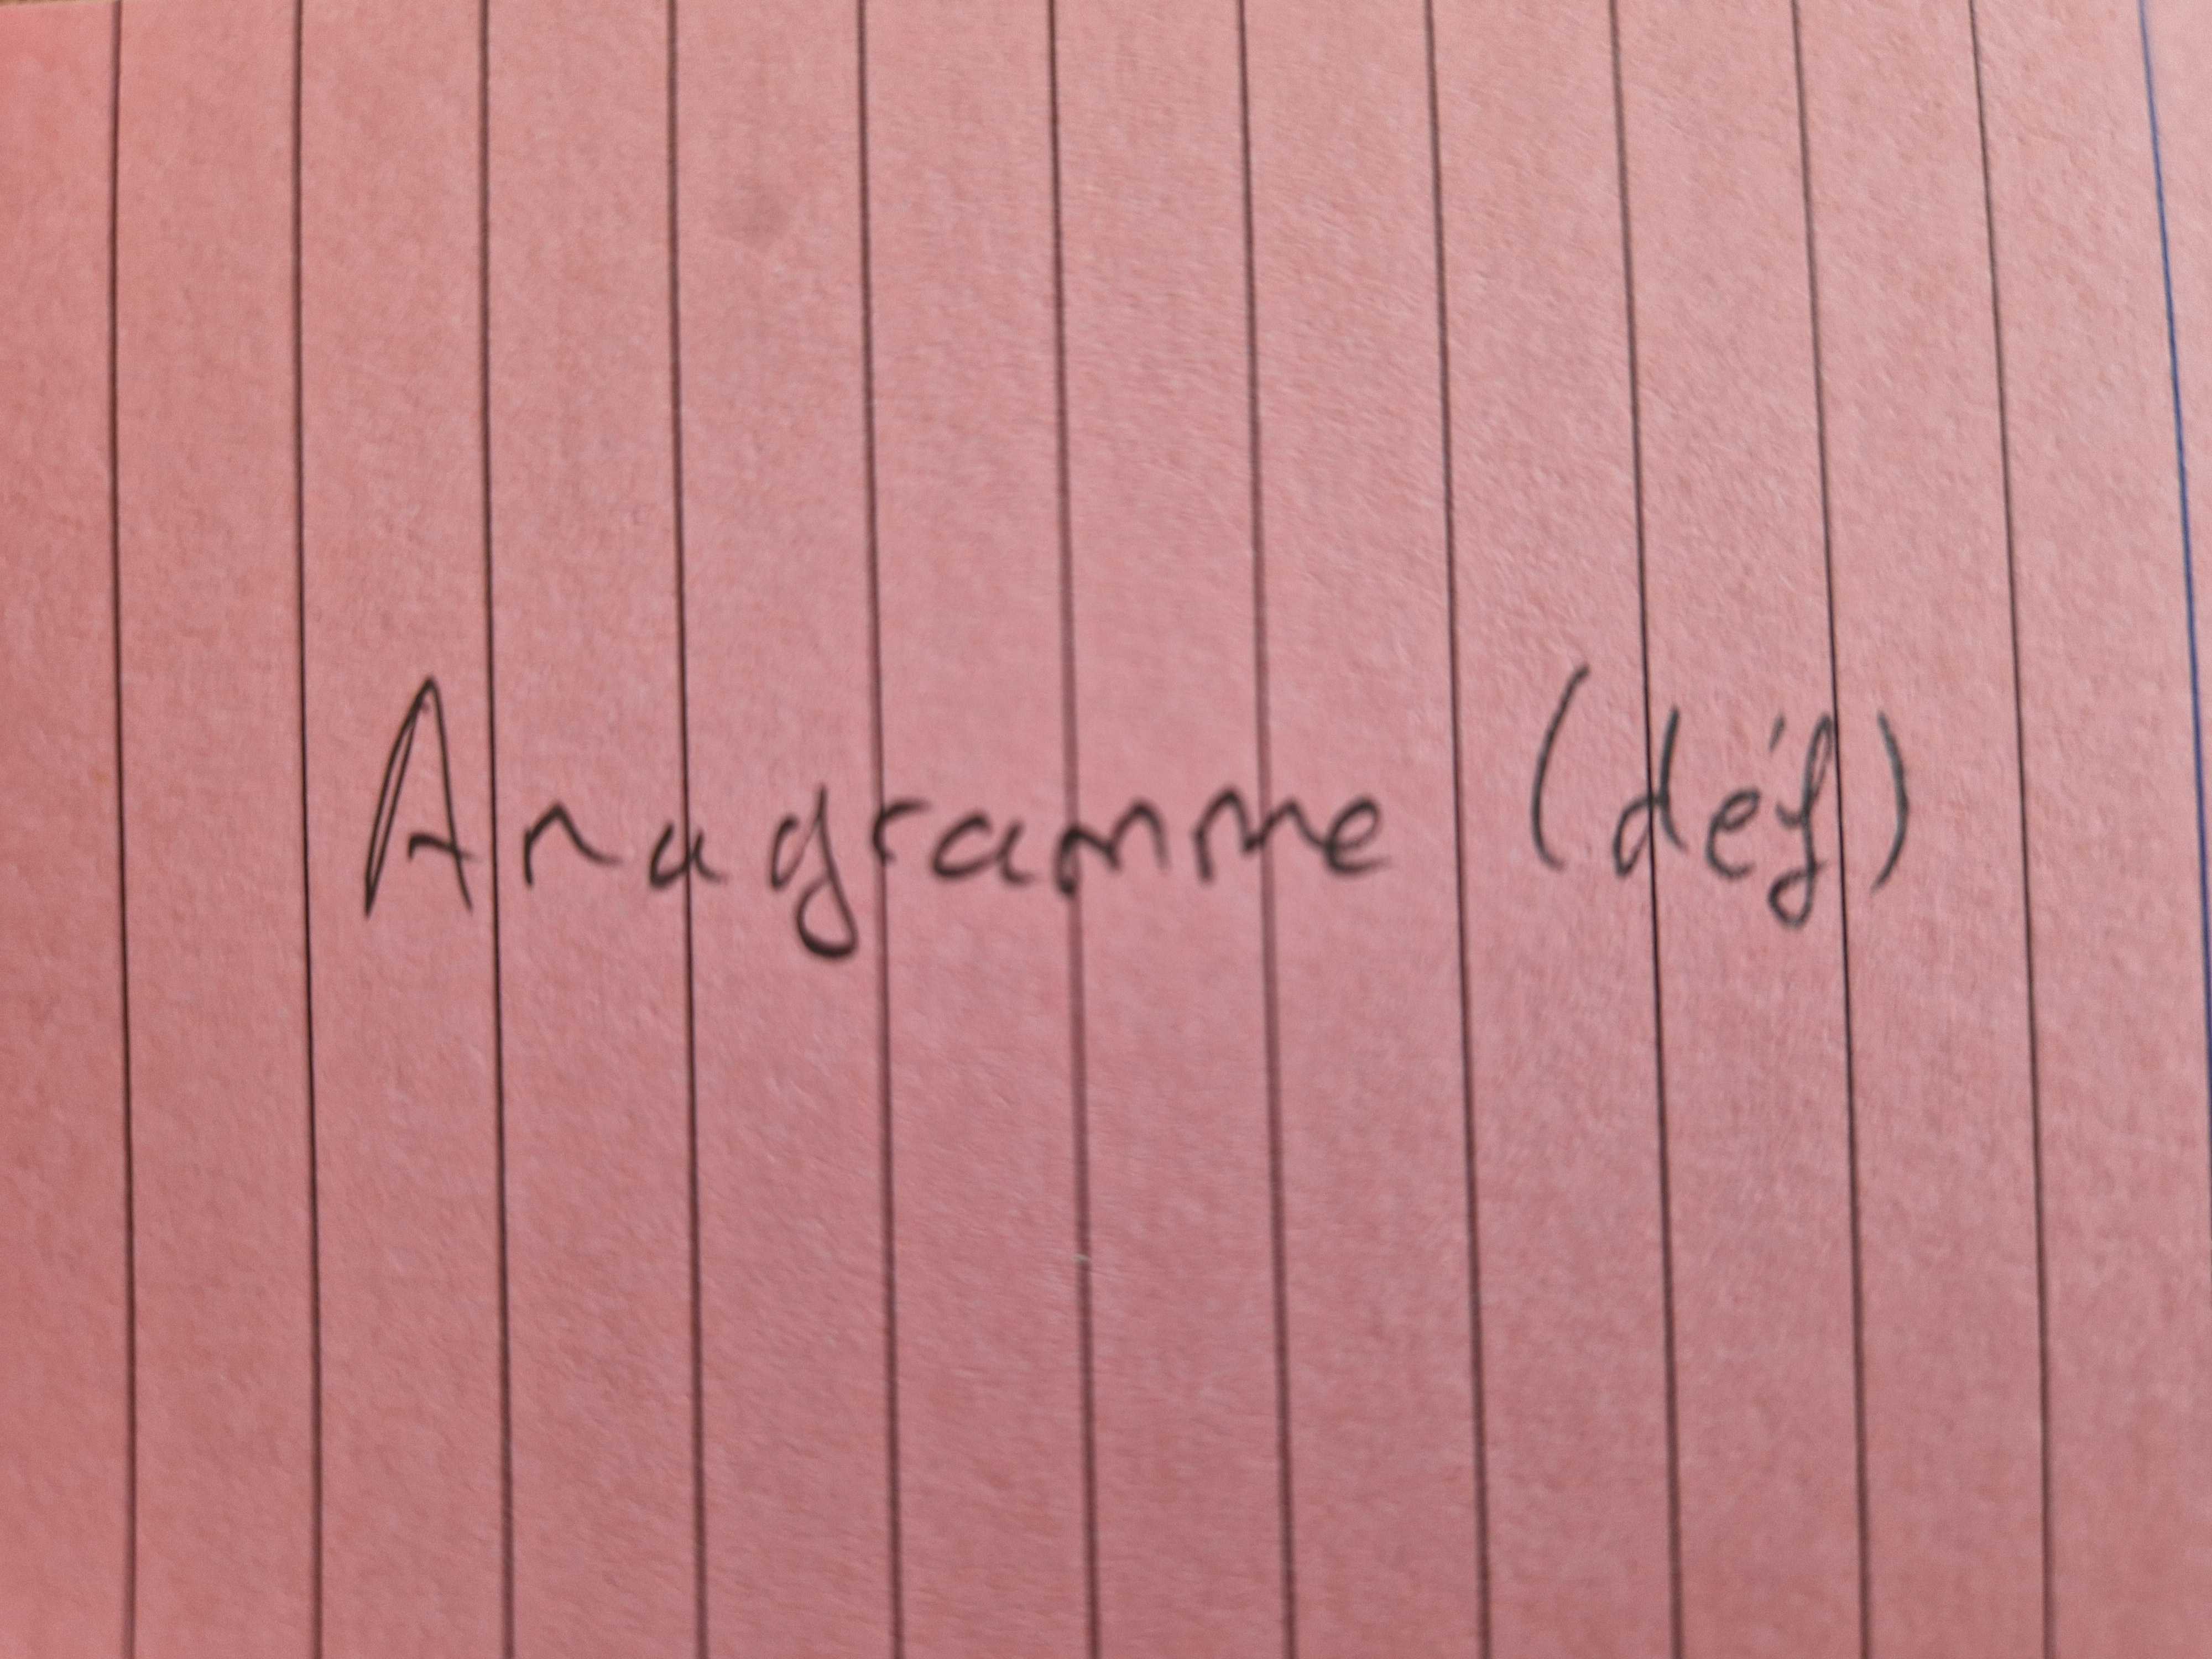 Anagramme (déf)